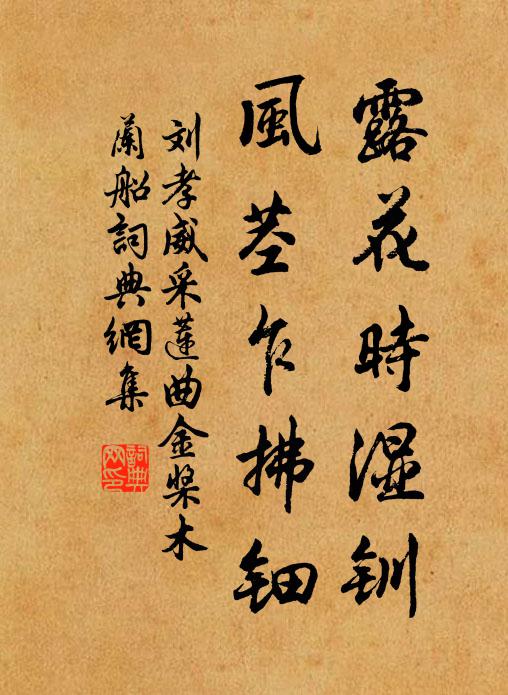 露花時濕釧
風莖乍拂鈿
刘孝威采蓮曲金槳木
蘭船詞典網集
詞典網印